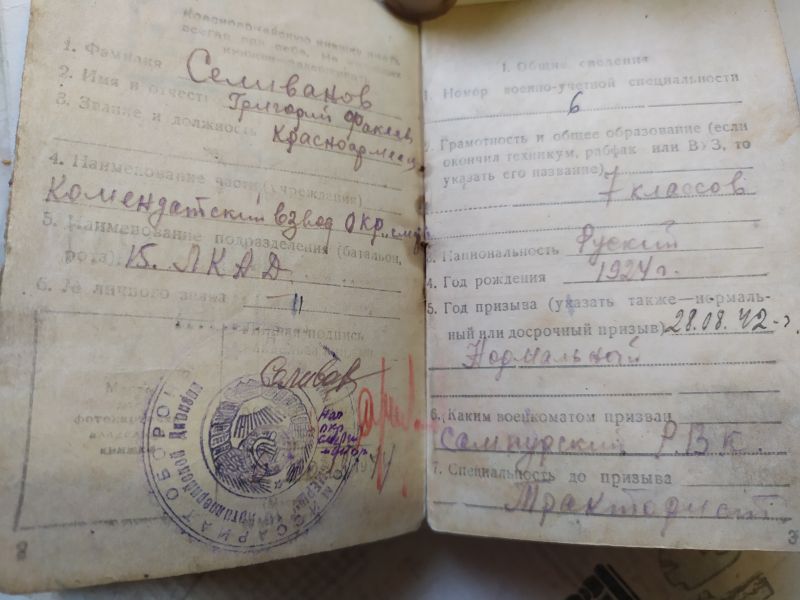 Красноармейскую книжку иметь
всегда при себе. Не имеющих
книжек задерживать
1. Фамилия Селиванов
2. Имя и отчест Григорий
3. Звание и должность Красноармеец
4. Наименование части (учреждения)
Комендатский взвод окр.
5. Наименование подразделения (батальон,
рота) 15. ЛКАД
6. № личного знака
Личная подпись
Селиван
АРИАТ ОБОРОНЫ
Артиллерийская Дивизия
8
1. Общие сведения
1. Номер военно-учетной специальности
6
2. Грамотность и общее образование (если
окончил техникум, рабфак или ВУЗ, то
указать его название)
7 классов
3. Национальность Руский
4. Год рождения 1924 г.
5. Год призыва (указать также—нормаль-
ный или досрочный призыв) 28.08.42
Нормальный
6. Каким военкоматом призван
Сампурский РВК
7. Специальность до призыва
Тракторист
3